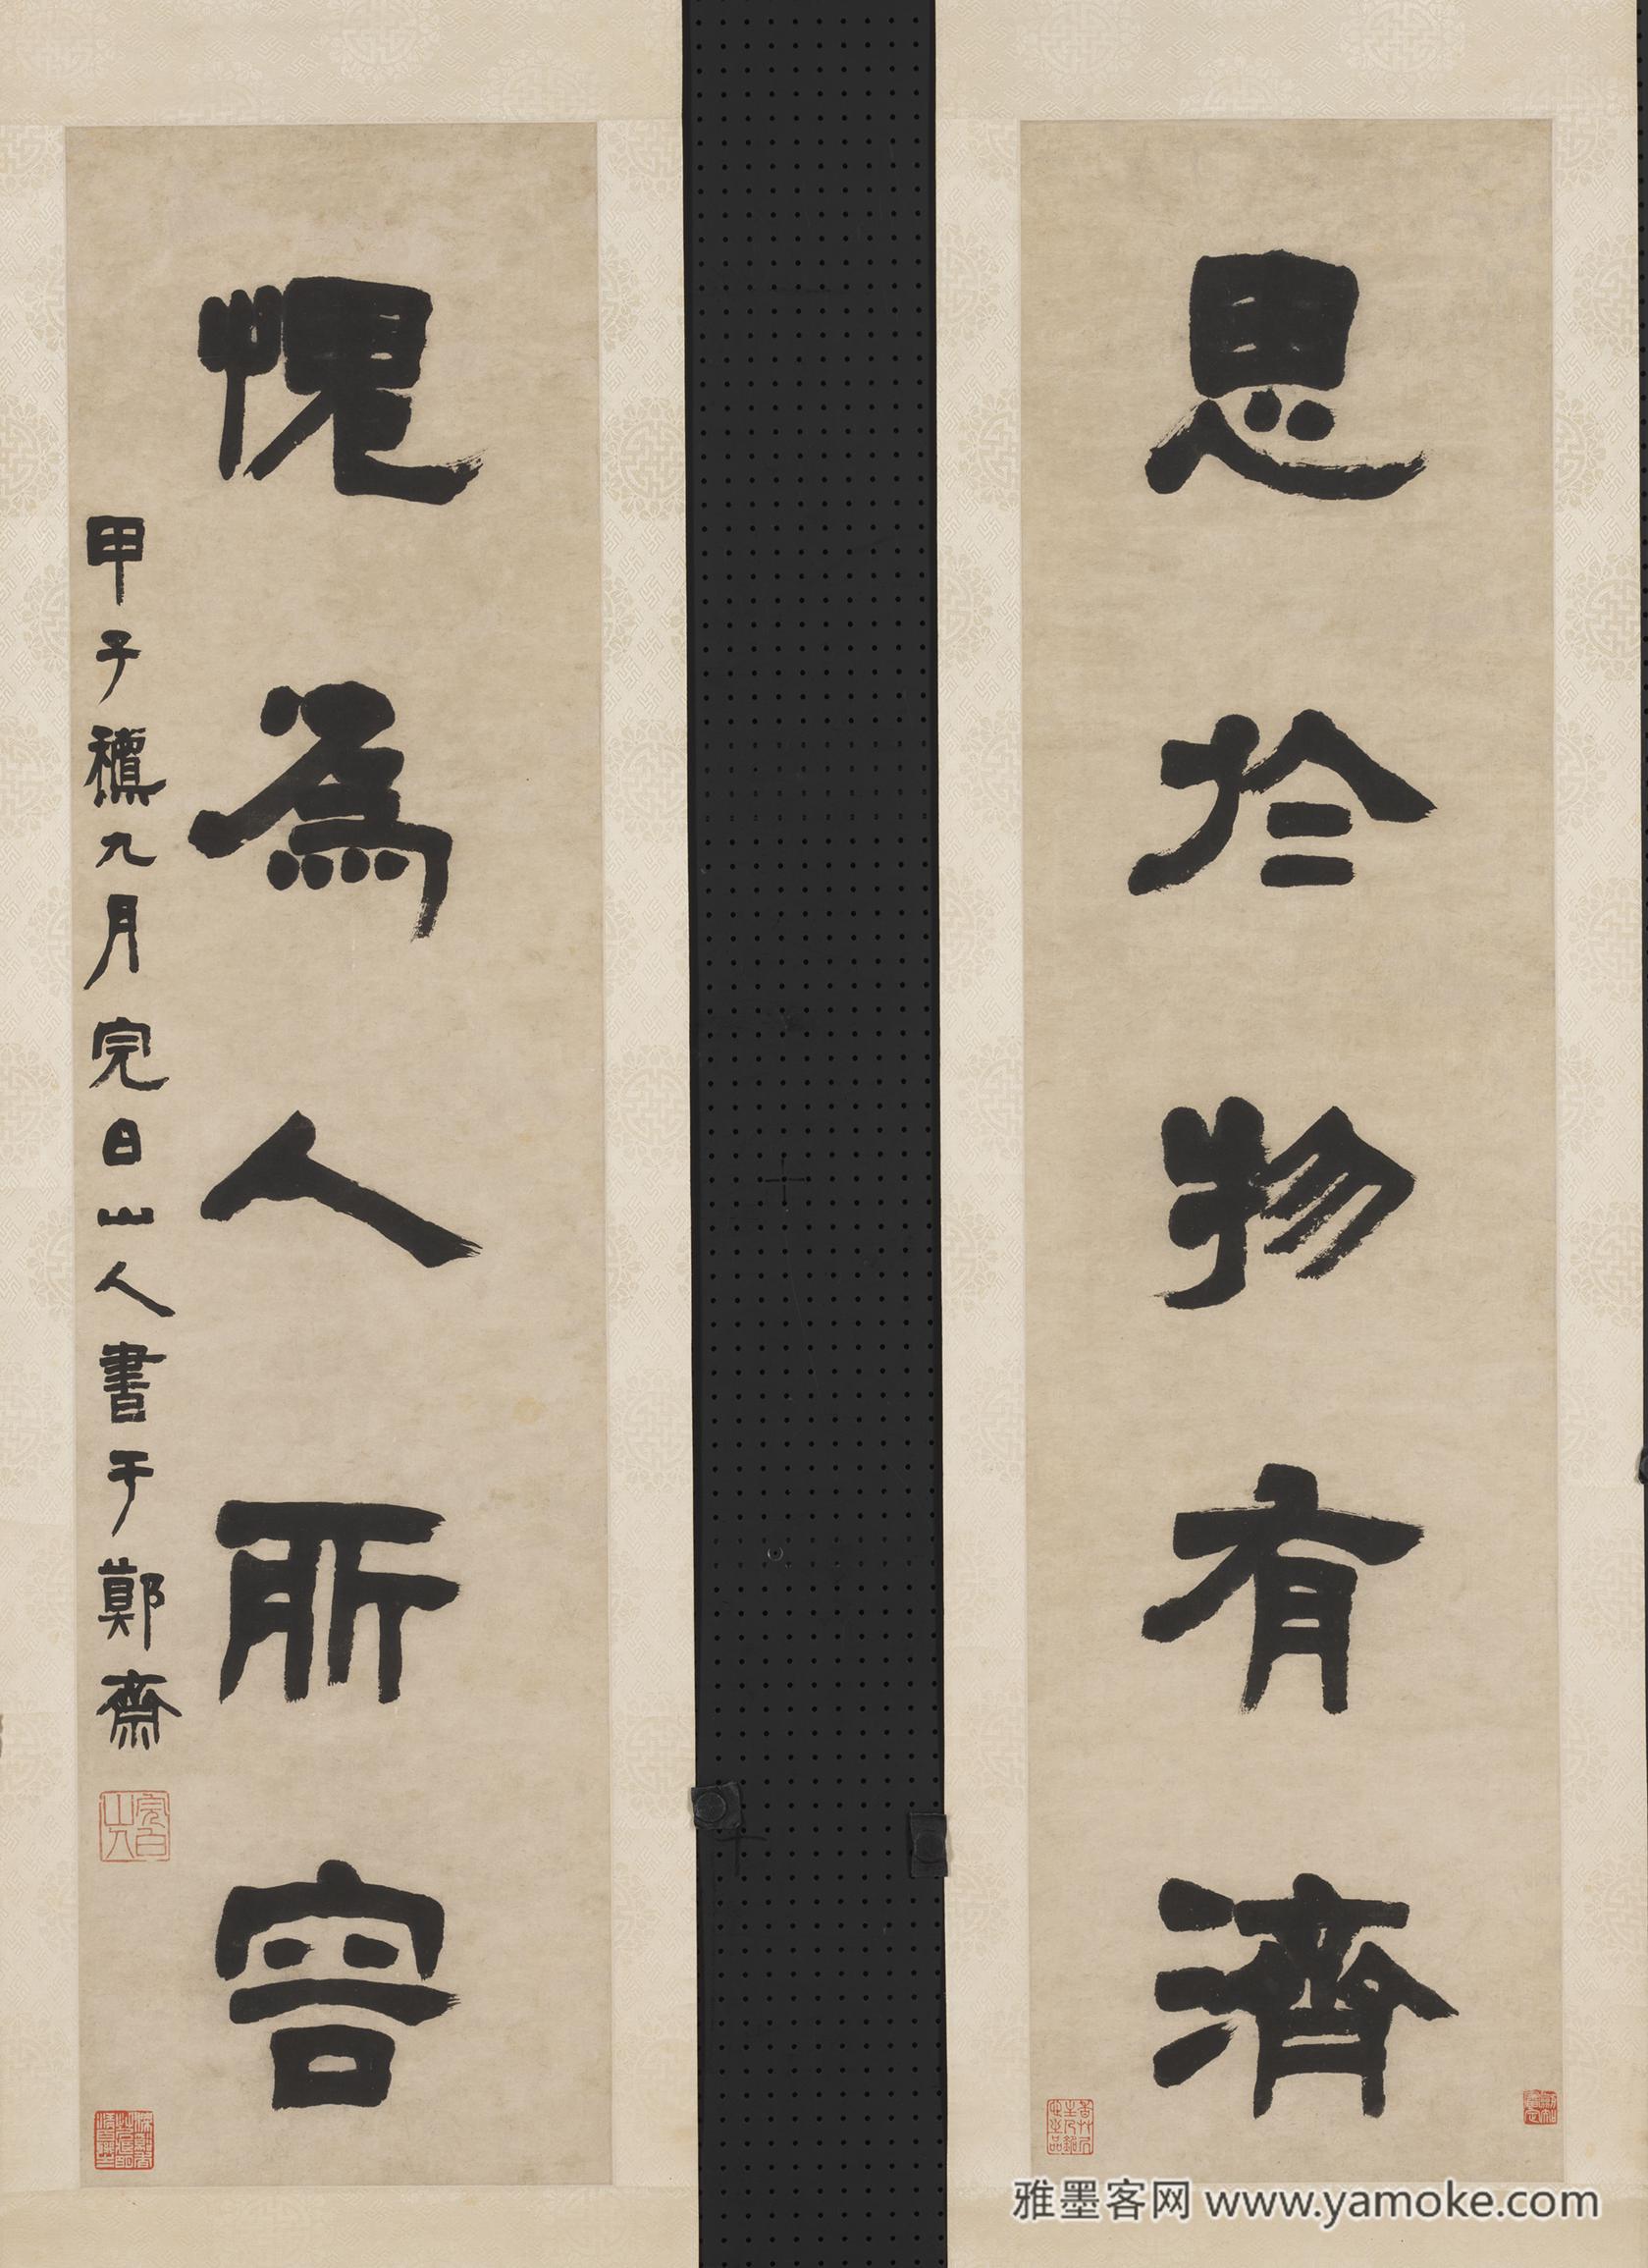 思於物有濟
愧爲人所容
甲子穐九月完白山人書于鄭齋
完白山人
雅墨客网 www.yamoke.com